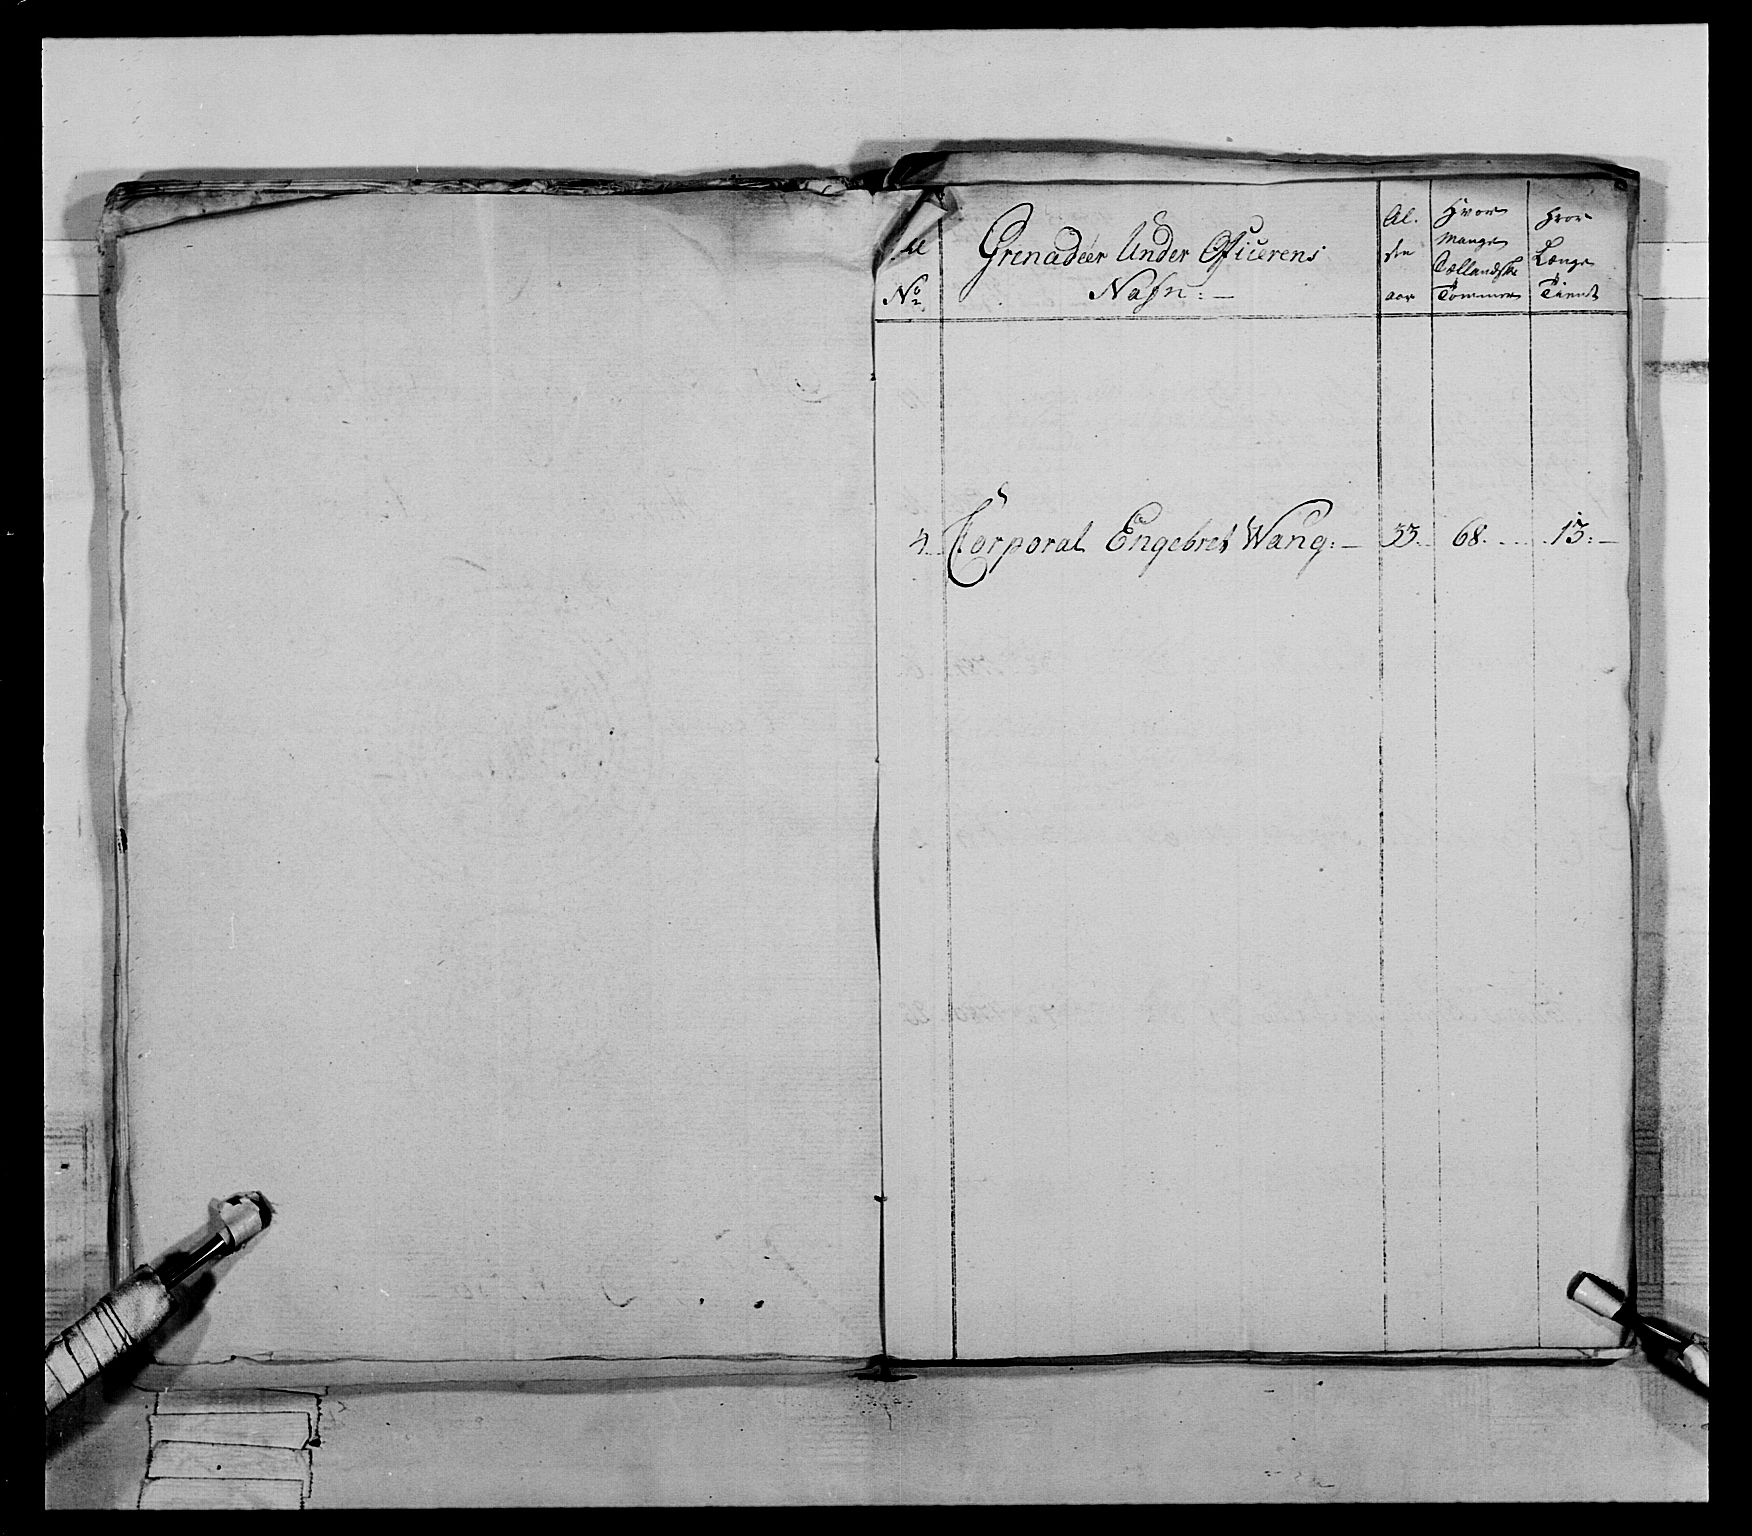 No Grenadeer Under Officerens Nafn:—
Al. der aar
Hvor Mange Sællandske Tommer
Hvor Længe Tient
4. Corporal Engebret Wang:— 33. 68. 13:—